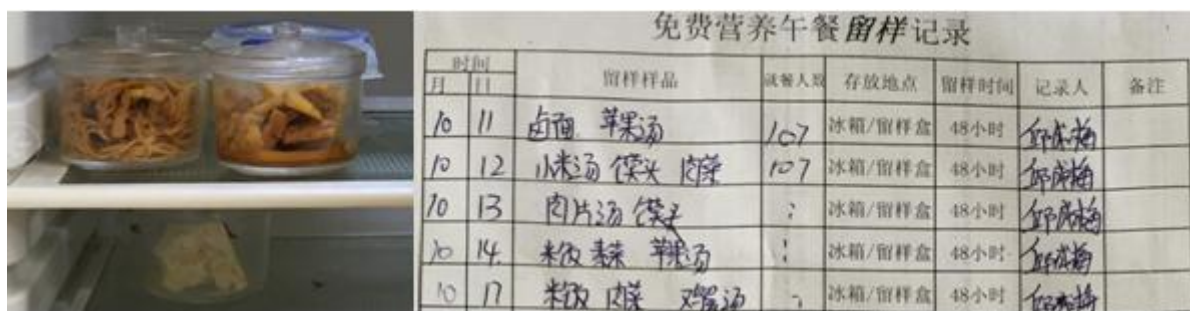 免费营养午餐留样记录
时间 留样样品 就餐人数 存放地点 留样时间 记录人 备注
月 日
10 11 卤面 苹果汤 107 冰箱/留样盒 48小时
10 12 小米汤 馍头 肉菜 107 冰箱/留样盒 48小时
10 13 肉片汤 冰箱/留样盒 48小时
10 14. 米饭 素菜 苹果汤 冰箱/留样盒 48小时
10 17 米饭 肉菜 鸡蛋汤 冰箱/留样盒 48小时